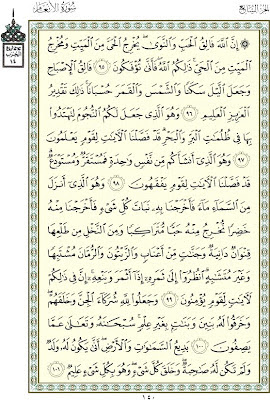 الجزء السابع
سورة الأنعام
۞ إِنَّ ٱللَّهَ فَالِقُ ٱلْحَبِّ وَٱلنَّوَىٰ يُخْرِجُ ٱلْحَىَّ مِنَ ٱلْمَيِّتِ وَمُخْرِجُ
ٱلْمَيِّتِ مِنَ ٱلْحَىِّ ذَٰلِكُمُ ٱللَّهُ فَأَنَّىٰ تُؤْفَكُونَ ٩٥ فَالِقُ ٱلْإِصْبَاحِ
وَجَعَلَ ٱلَّيْلَ سَكَنًا وَٱلشَّمْسَ وَٱلْقَمَرَ حُسْبَانًا ذَٰلِكَ تَقْدِيرُ
ٱلْعَزِيزِ ٱلْعَلِيمِ ٩٦ وَهُوَ ٱلَّذِى جَعَلَ لَكُمُ ٱلنُّجُومَ لِتَهْتَدُوا۟
بِهَا فِى ظُلُمَٰتِ ٱلْبَرِّ وَٱلْبَحْرِ قَدْ فَصَّلْنَا ٱلْءَايَٰتِ لِقَوْمٍ يَعْلَمُونَ
٩٧ وَهُوَ ٱلَّذِىٓ أَنشَأَكُم مِّن نَّفْسٍ وَٰحِدَةٍ فَمُسْتَقَرٌّ وَمُسْتَوْدَعٌ
قَدْ فَصَّلْنَا ٱلْءَايَٰتِ لِقَوْمٍ يَفْقَهُونَ ٩٨ وَهُوَ ٱلَّذِىٓ أَنزَلَ
مِنَ ٱلسَّمَآءِ مَآءً فَأَخْرَجْنَا بِهِۦ نَبَاتَ كُلِّ شَىْءٍ فَأَخْرَجْنَا مِنْهُ
خَضِرًا نُّخْرِجُ مِنْهُ حَبًّا مُّتَرَاكِبًا وَمِنَ ٱلنَّخْلِ مِن طَلْعِهَا
قِنْوَانٌ دَانِيَةٌ وَجَنَّٰتٍ مِّنْ أَعْنَابٍ وَٱلزَّيْتُونَ وَٱلرُّمَّانَ مُشْتَبِهًا
وَغَيْرَ مُتَشَٰبِهٍ ٱنظُرُوٓا۟ إِلَىٰ ثَمَرِهِۦٓ إِذَآ أَثْمَرَ وَيَنْعِهِۦٓ إِنَّ فِى ذَٰلِكُمْ
لَءَايَٰتٍ لِّقَوْمٍ يُؤْمِنُونَ ٩٩ وَجَعَلُوا۟ لِلَّهِ شُرَكَآءَ ٱلْجِنَّ وَخَلَقَهُمْ
وَخَرَقُوا۟ لَهُۥ بَنِينَ وَبَنَٰتٍۭ بِغَيْرِ عِلْمٍ سُبْحَٰنَهُۥ وَتَعَٰلَىٰ عَمَّا
يَصِفُونَ ١٠٠ بَدِيعُ ٱلسَّمَٰوَٰتِ وَٱلْأَرْضِ أَنَّىٰ يَكُونُ لَهُۥ وَلَدٌ
وَلَمْ تَكُن لَّهُۥ صَٰحِبَةٌ وَخَلَقَ كُلَّ شَىْءٍ وَهُوَ بِكُلِّ شَىْءٍ عَلِيمٌ ١٠١
١٤٠